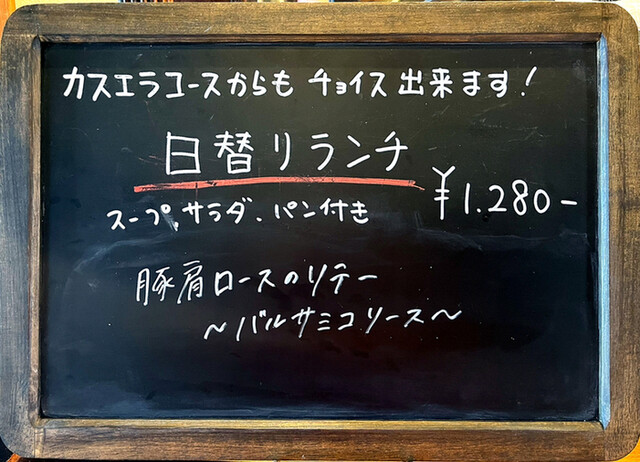 カスエラコースからもチョイス出来ます!
日替リランチ
¥1.280-
スープ、サラダ、パン付き
豚肩ロースのソテー
~バルサミコソース~